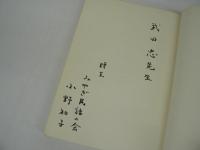 武田忠先生
謹呈
みやぎ民話の会
小野和子